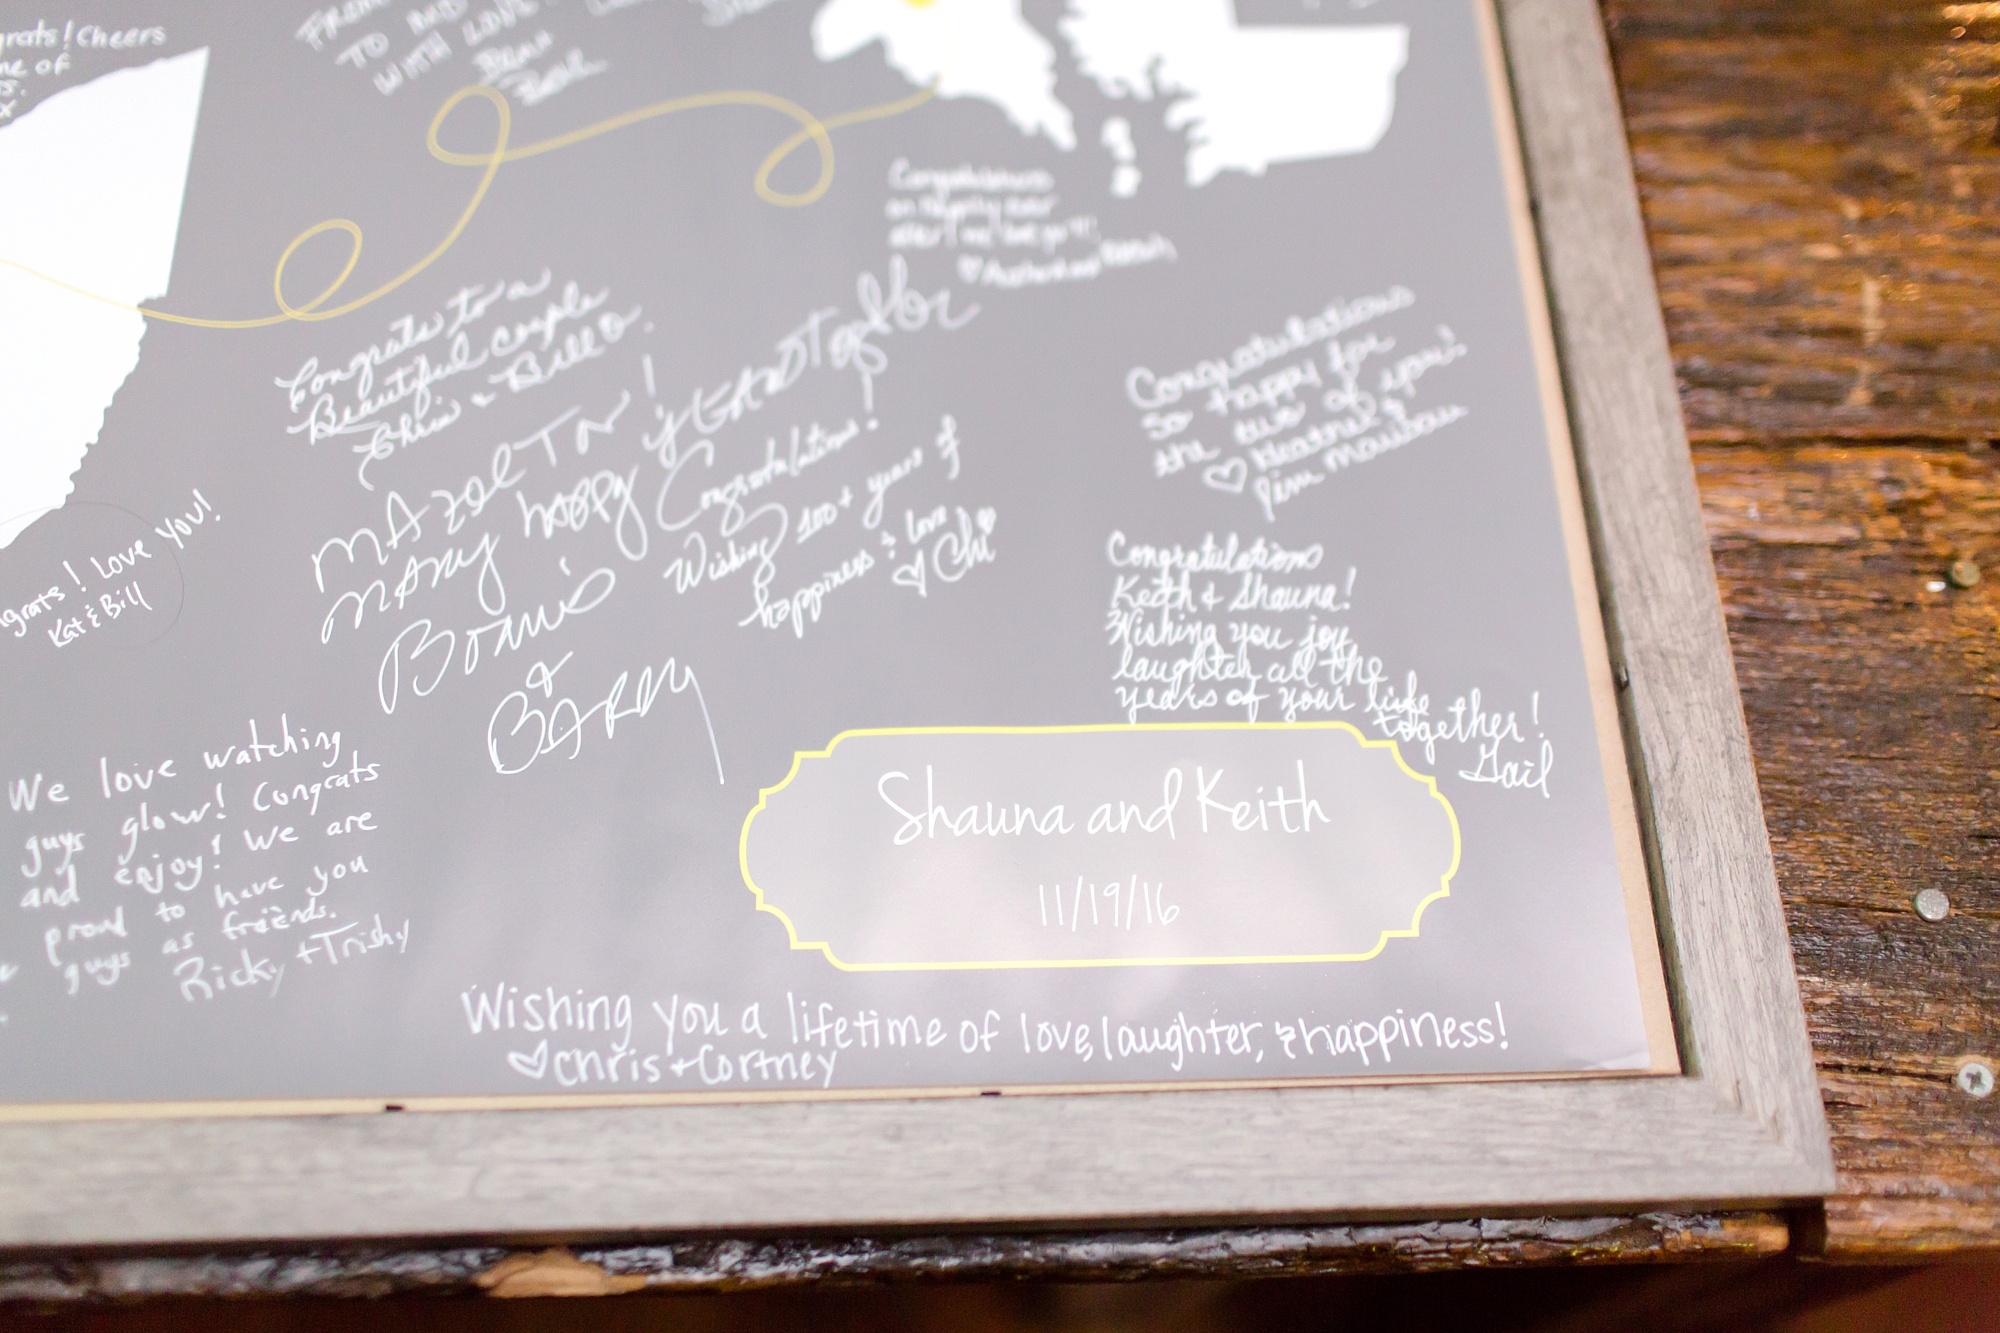 grats! Cheers
of
FROM
TO AND
WITH LOVE
Congratulations
on happily ever
after!
Congrats to a
Beautiful couple
Chris & Bill O.
MAZOL TOV!
MANY happy YEARS Together
Bonnie
&
BARRY
Congratulations!
Wishing 100+ years of
happiness & love
♡ Chi
Congratulations
So happy for
the two of you!
♡ Heather &
Jim
ngrats! Love You!
Kat & Bill
Congratulations
Keith & Shauna!
Wishing you joy,
laughter all the
years of your life
together!
Gail
We love watching
guys glow! Congrats
and enjoy! We are
proud to have you
guys as friends.
Ricky + Trishy
Shauna and Keith
11/19/16
Wishing you a lifetime of love, laughter, & happiness!
♡ Chris + Cortney